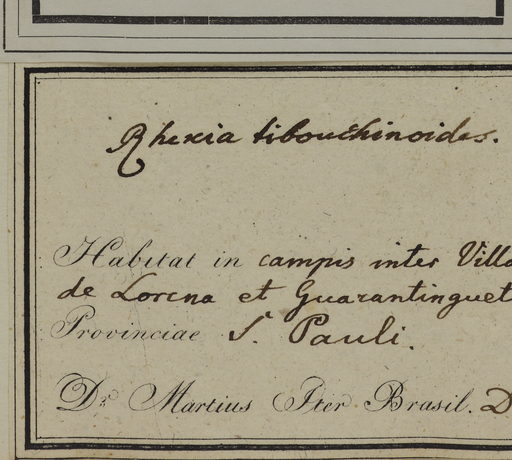 Rhexia tibouchinoides.
Habitat in campis inter Villa
de Lorena et Guarantinguet
Provinciae S. Pauli.
Dr. Martius Iter Brasil. D